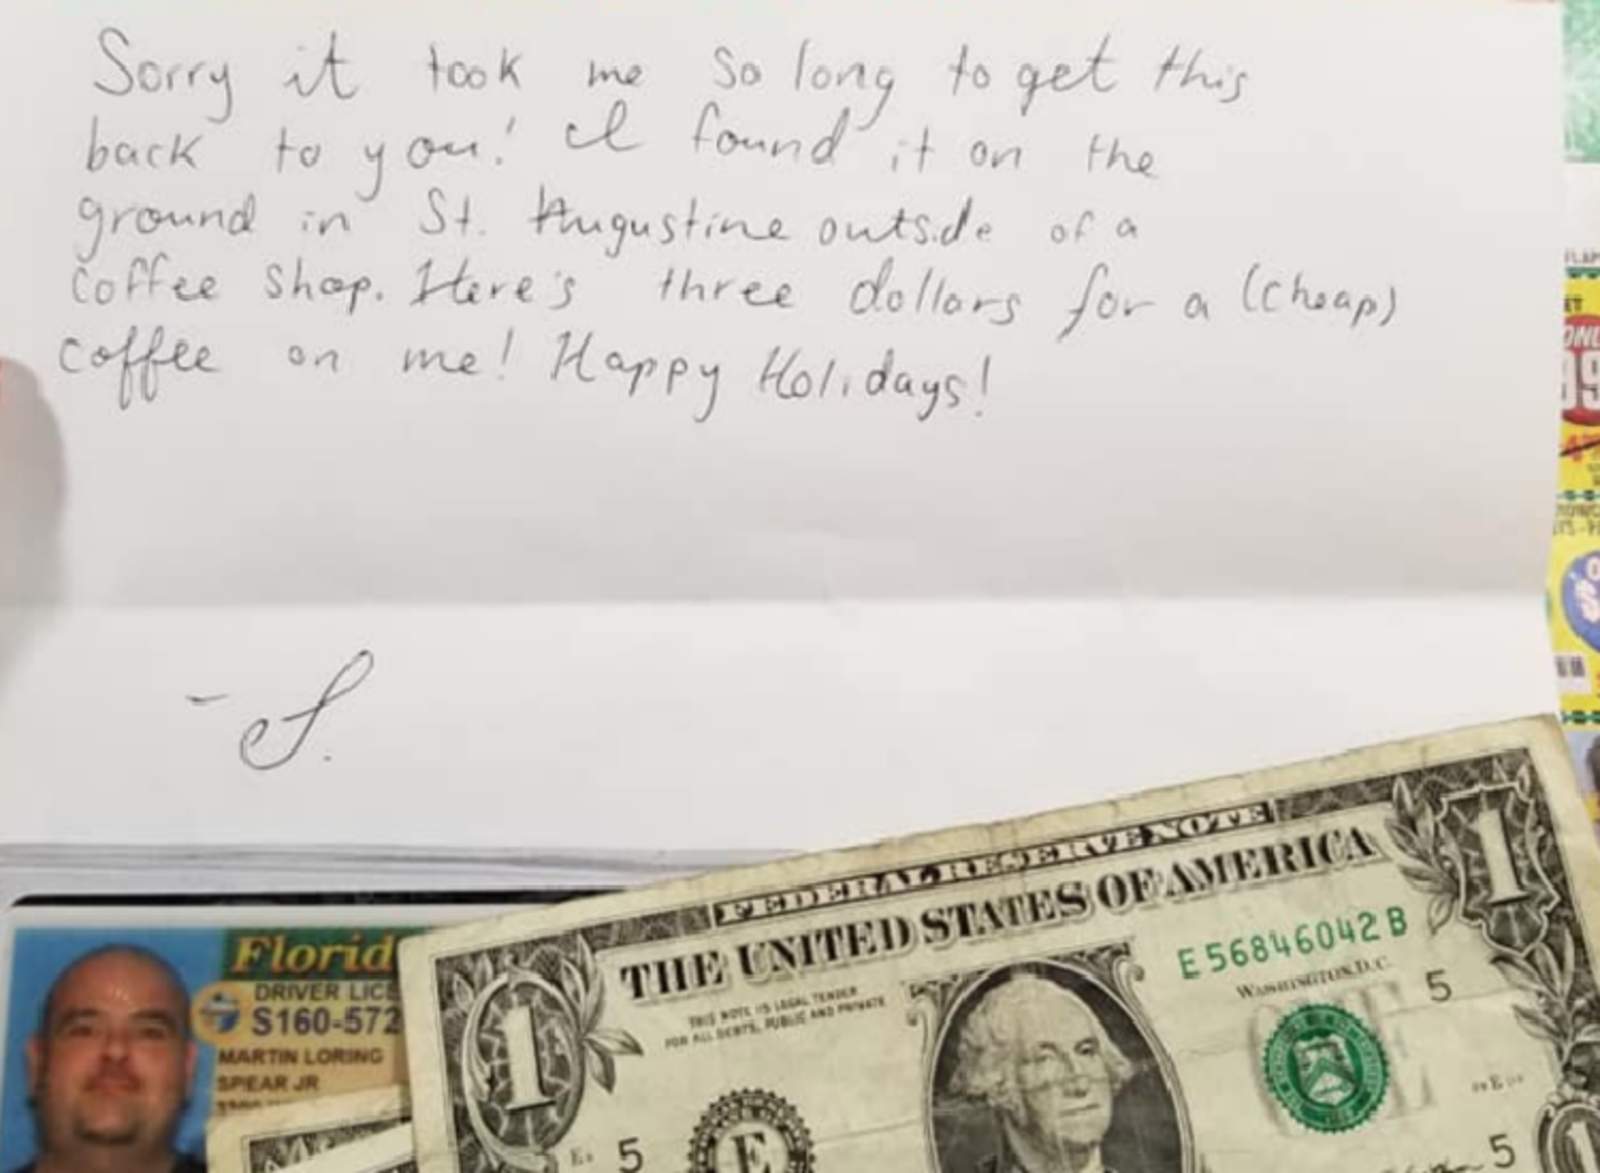 Sorry it took me so long to get this
back to you! I found it on the
ground in St. Augustine outside of a
coffee shop. Here's three dollars for a (cheap)
coffee on me! Happy Holidays!
- S.
FEDERAL RESERVE NOTE
THE UNITED STATES OF AMERICA
1
1
THIS NOTE IS LEGAL TENDER
FOR ALL DEBTS, PUBLIC AND PRIVATE
E 56846042 B
WASHINGTON, D.C.
5
5
E
5
1
Florid
DRIVER LICE
S160-572
MARTIN LORING
SPEAR JR